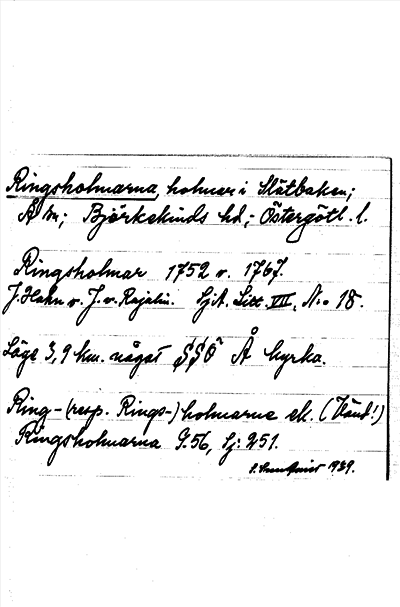 Ringsholmarna, holmar i Slätbaken;
Å sn; Björkekinds hd.; Östergötl. l.
Ringsholmar 1752 o. 1767.
J. Hahn o. J. v. Rajalin. SjA. Litt. VII, No 18.
Läge 3,9 km. något SSO Å kyrka.
Ring- (resp. Rings-) holmarne ek. (Känt!)
Ringsholmarna G:56, Sj: 251.
1939.